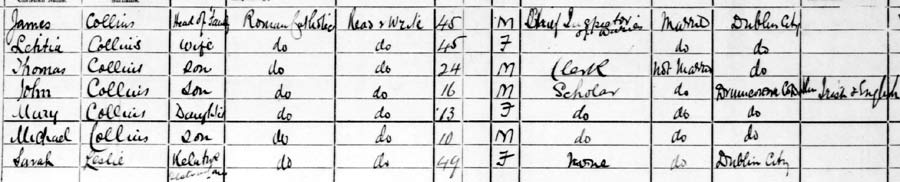 James Collins Head of Family Roman Catholic Read & Write 45 M Chief Inspector Married Dublin City
Letitia Collins Wife do do 45 F do do
Thomas Collins Son do do 24 M Clerk Not Married do
John Collins Son do do 16 M Scholar do Irish & English
Mary Collins Daughter do do 13 F do do do
Michael Collins Son do do 10 M do do do
Sarah Leslie Relative do do 49 F None do Dublin City